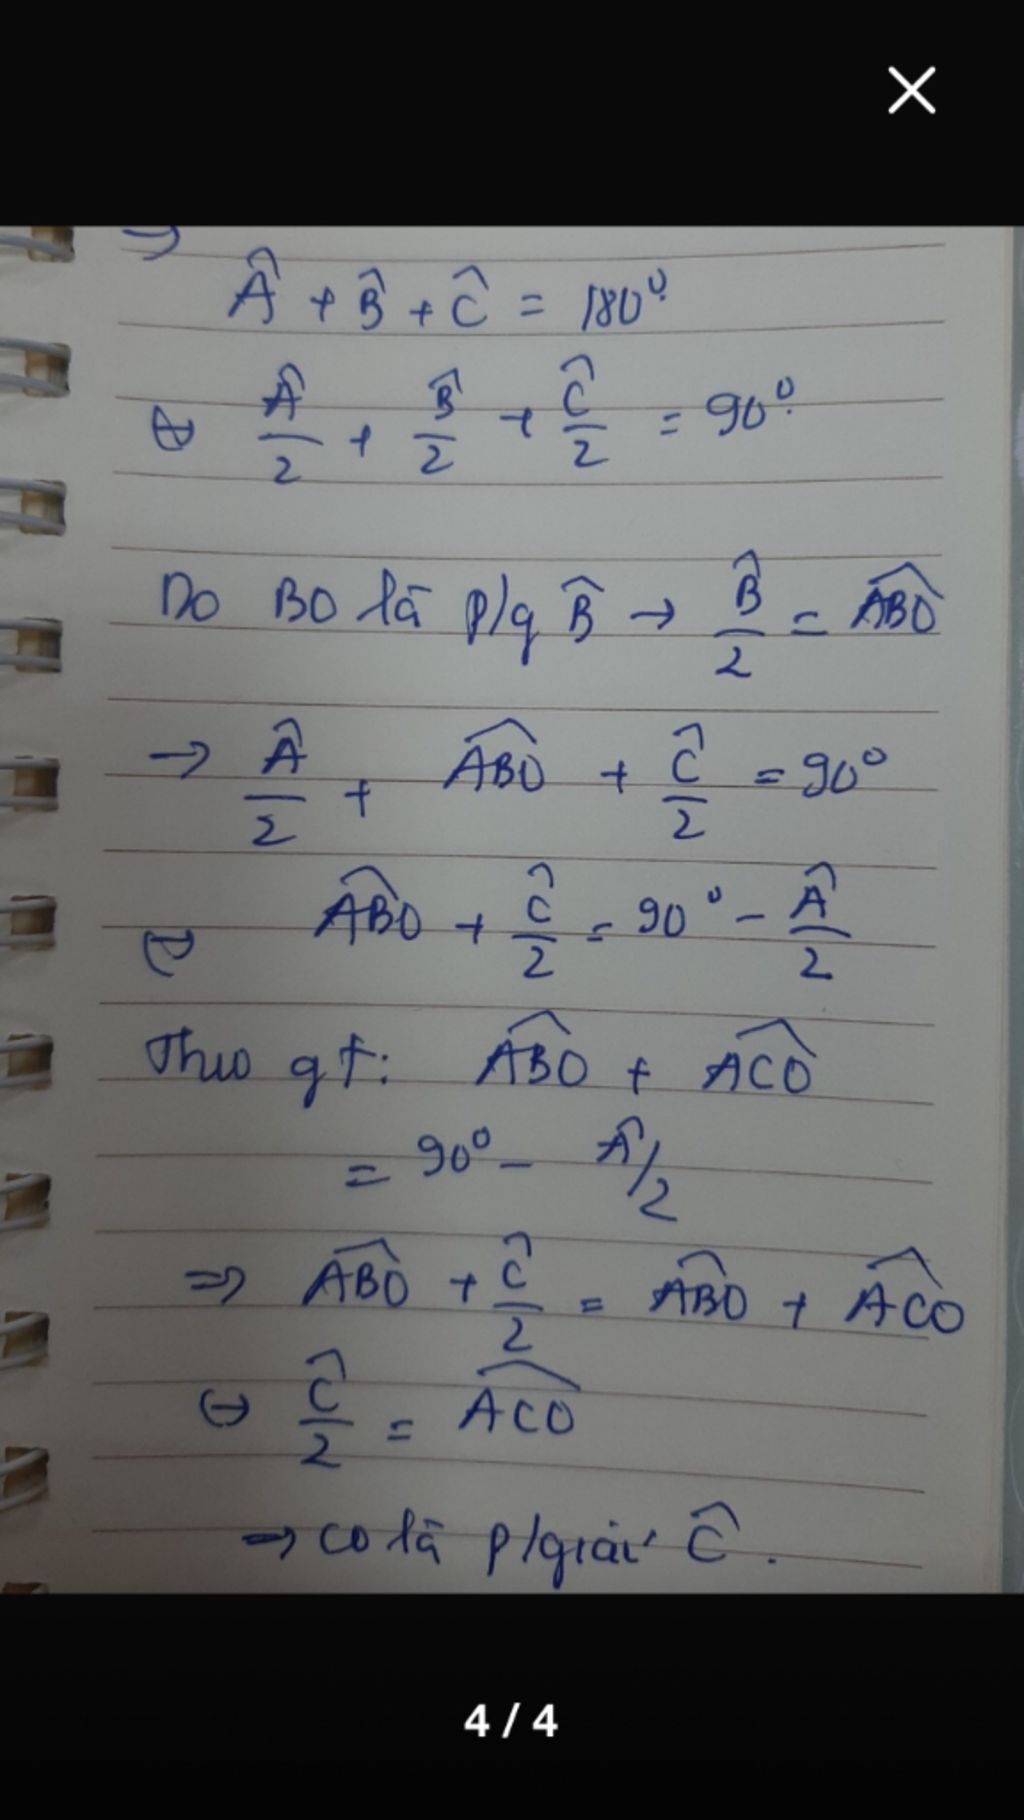 ⇒
Â + B̂ + Ĉ = 180⁰.
⇔ Â/2 + B̂/2 + Ĉ/2 = 90⁰.
Do BO là p/g B̂ → B̂/2 = ABO^
→ Â/2 + ABO^ + Ĉ/2 = 90⁰
⇔ ABO^ + Ĉ/2 = 90⁰ - Â/2
Theo gt: ABO^ + ACO^
= 90⁰ - Â/2
⇒ ABO^ + Ĉ/2 = ABO^ + ACO^
⇔ Ĉ/2 = ACO^
→ CO là p/giác Ĉ.
4 / 4